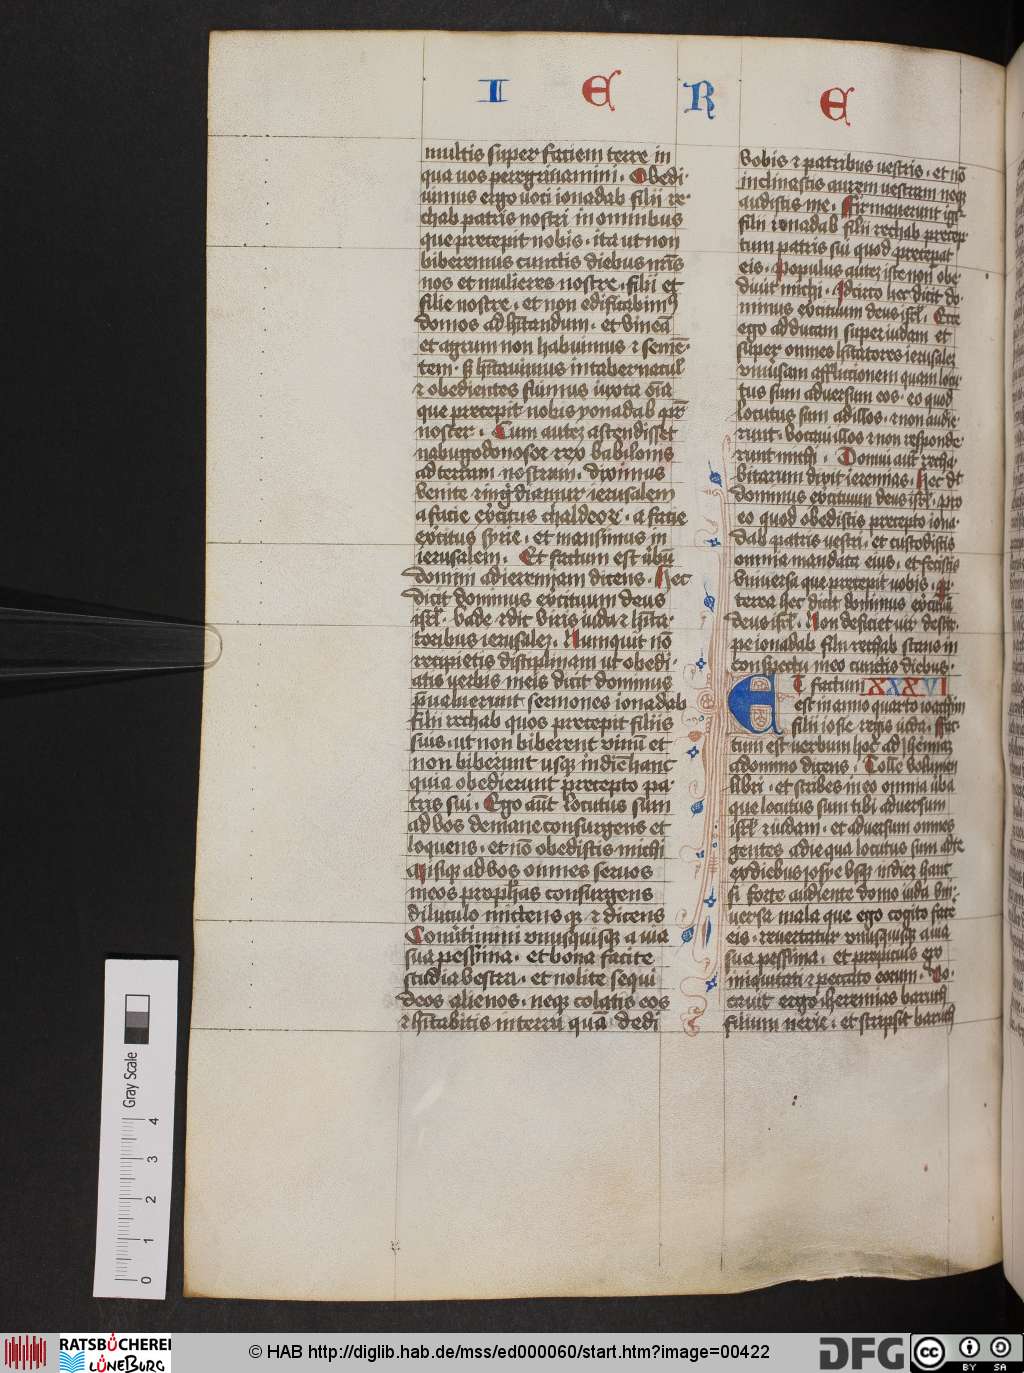 I E R E
multis super faciem terre in
qua uos peregrinamini . Obedi
uimus ergo uoci ionadab filii re
chab patris nostri in omnibus
que precepit nobis . ita ut non
biberemus cunctis diebus nr̄is
nos et mulieres nostre . filii et
filie nostre . et non edificabimꝰ
domos ad hītandum . et vineā
et agrum non habuimus ⁊ semē
tem . sꝫ hītauimus in tabernacul̄
⁊ obedientes fuimus iuxta om̄ia
que precepit nobis yonadab pr̄
noster . Cum autez ascendisset
nabugodonosor rex babilonis
ad terram nostram . diximus
venite ⁊ ingrediamur ierusalem
a facie exercitus chaldeoꝝ . a facie
exercitus syrie . et mansimus in
ierusalem . Et factum est ūbū
domini ad ieremiam dicens . Hec
dicit dominus exercituum deus
isrl̄ . Vade ⁊ dic viris iuda ⁊ hīta
toribus ierusalez . Nunquit nō
recipietis disciplinam ut obedi
atis verbis meis dicit dominus
p̄ualuerunt sermones ionadab
filii rechab quos precepit filiis
suis . ut non biberent vinū et
non biberunt usqꝫ in diē hanc
quia obedierunt precepto pa
tris sui . Ego aūt locutus sum
ad vos de mane consurgens et
loquens . et nō obedistis michi
Misiqꝫ ad vos omnes seruos
meos prophetas consurgens
diluculo mittens qꝫ ⁊ dicens
Conuertimini vnusquisqꝫ a uia
sua pessima . et bona facite
studia vestra . et nolite sequi
deos alienos . neqꝫ colatis eos
⁊ hītabitis in terra quā dedi
vobis ⁊ patribus uestris . et nō
inclinastis aurem uestram neqꝫ
audistis me . Firmauerunt igr̄
filii ionadab filii rechab precep
tum patris sui quod preceperat
eis . Populus autez iste non obe
diuit michi . Idcirco hec dicit do
minus exercituum deus isrl̄ . Ecce
ego adducam super iudam et
super omnes hītatores ierusalez
vniuersam afflictionem quam locu
tus sum aduersum eos . eo quod
locutus sum ad illos . ⁊ non audie
runt . vocaui illos ⁊ non responde
runt michi . Domui aūt recha
bitarum dixit ieremias . Hec dt̄
dominus exercituum deus isrl̄ . pro
eo quod obedistis precepto iona
dab patris uestri . et custodistis
omnia mandata eius . et fecistis
vniuersa que precepit uobis .
terea hec dicit dominus exercituū
deus isrl̄ . Non deficiet uir de stir
pe ionadab filii rechab stans in
conspectu meo cunctis diebus .
ET factum XXXVI
est in anno quarto ioachim
filii iosie regis iuda . Fac
tum est uerbum hoc ad Jheremiaz
a domino dicens . Tolle volumen
libri . et scribes in eo omnia ūba
que locutus sum tibi aduersum
isrl̄ ⁊ iudam . et aduersum omnes
gentes a die qua locutus sum ad te
ex diebus iosye vsqꝫ in diez hanc
si forte audiente domo iuda vni
uersa mala que ego cogito facē
eis . reuertatur vnusquisqꝫ a uia
sua pessima . et propicius ero
iniquitati ⁊ peccato eorum . Vo
cauit ergo iheremias baruch
filium nerie . et scripsit baruch
Gray Scale
0 1 2 3 4
RATSBÜCHEREI
LÜNEBURG
© HAB http://diglib.hab.de/mss/ed000060/start.htm?image=00422
DFG
cc BY SA